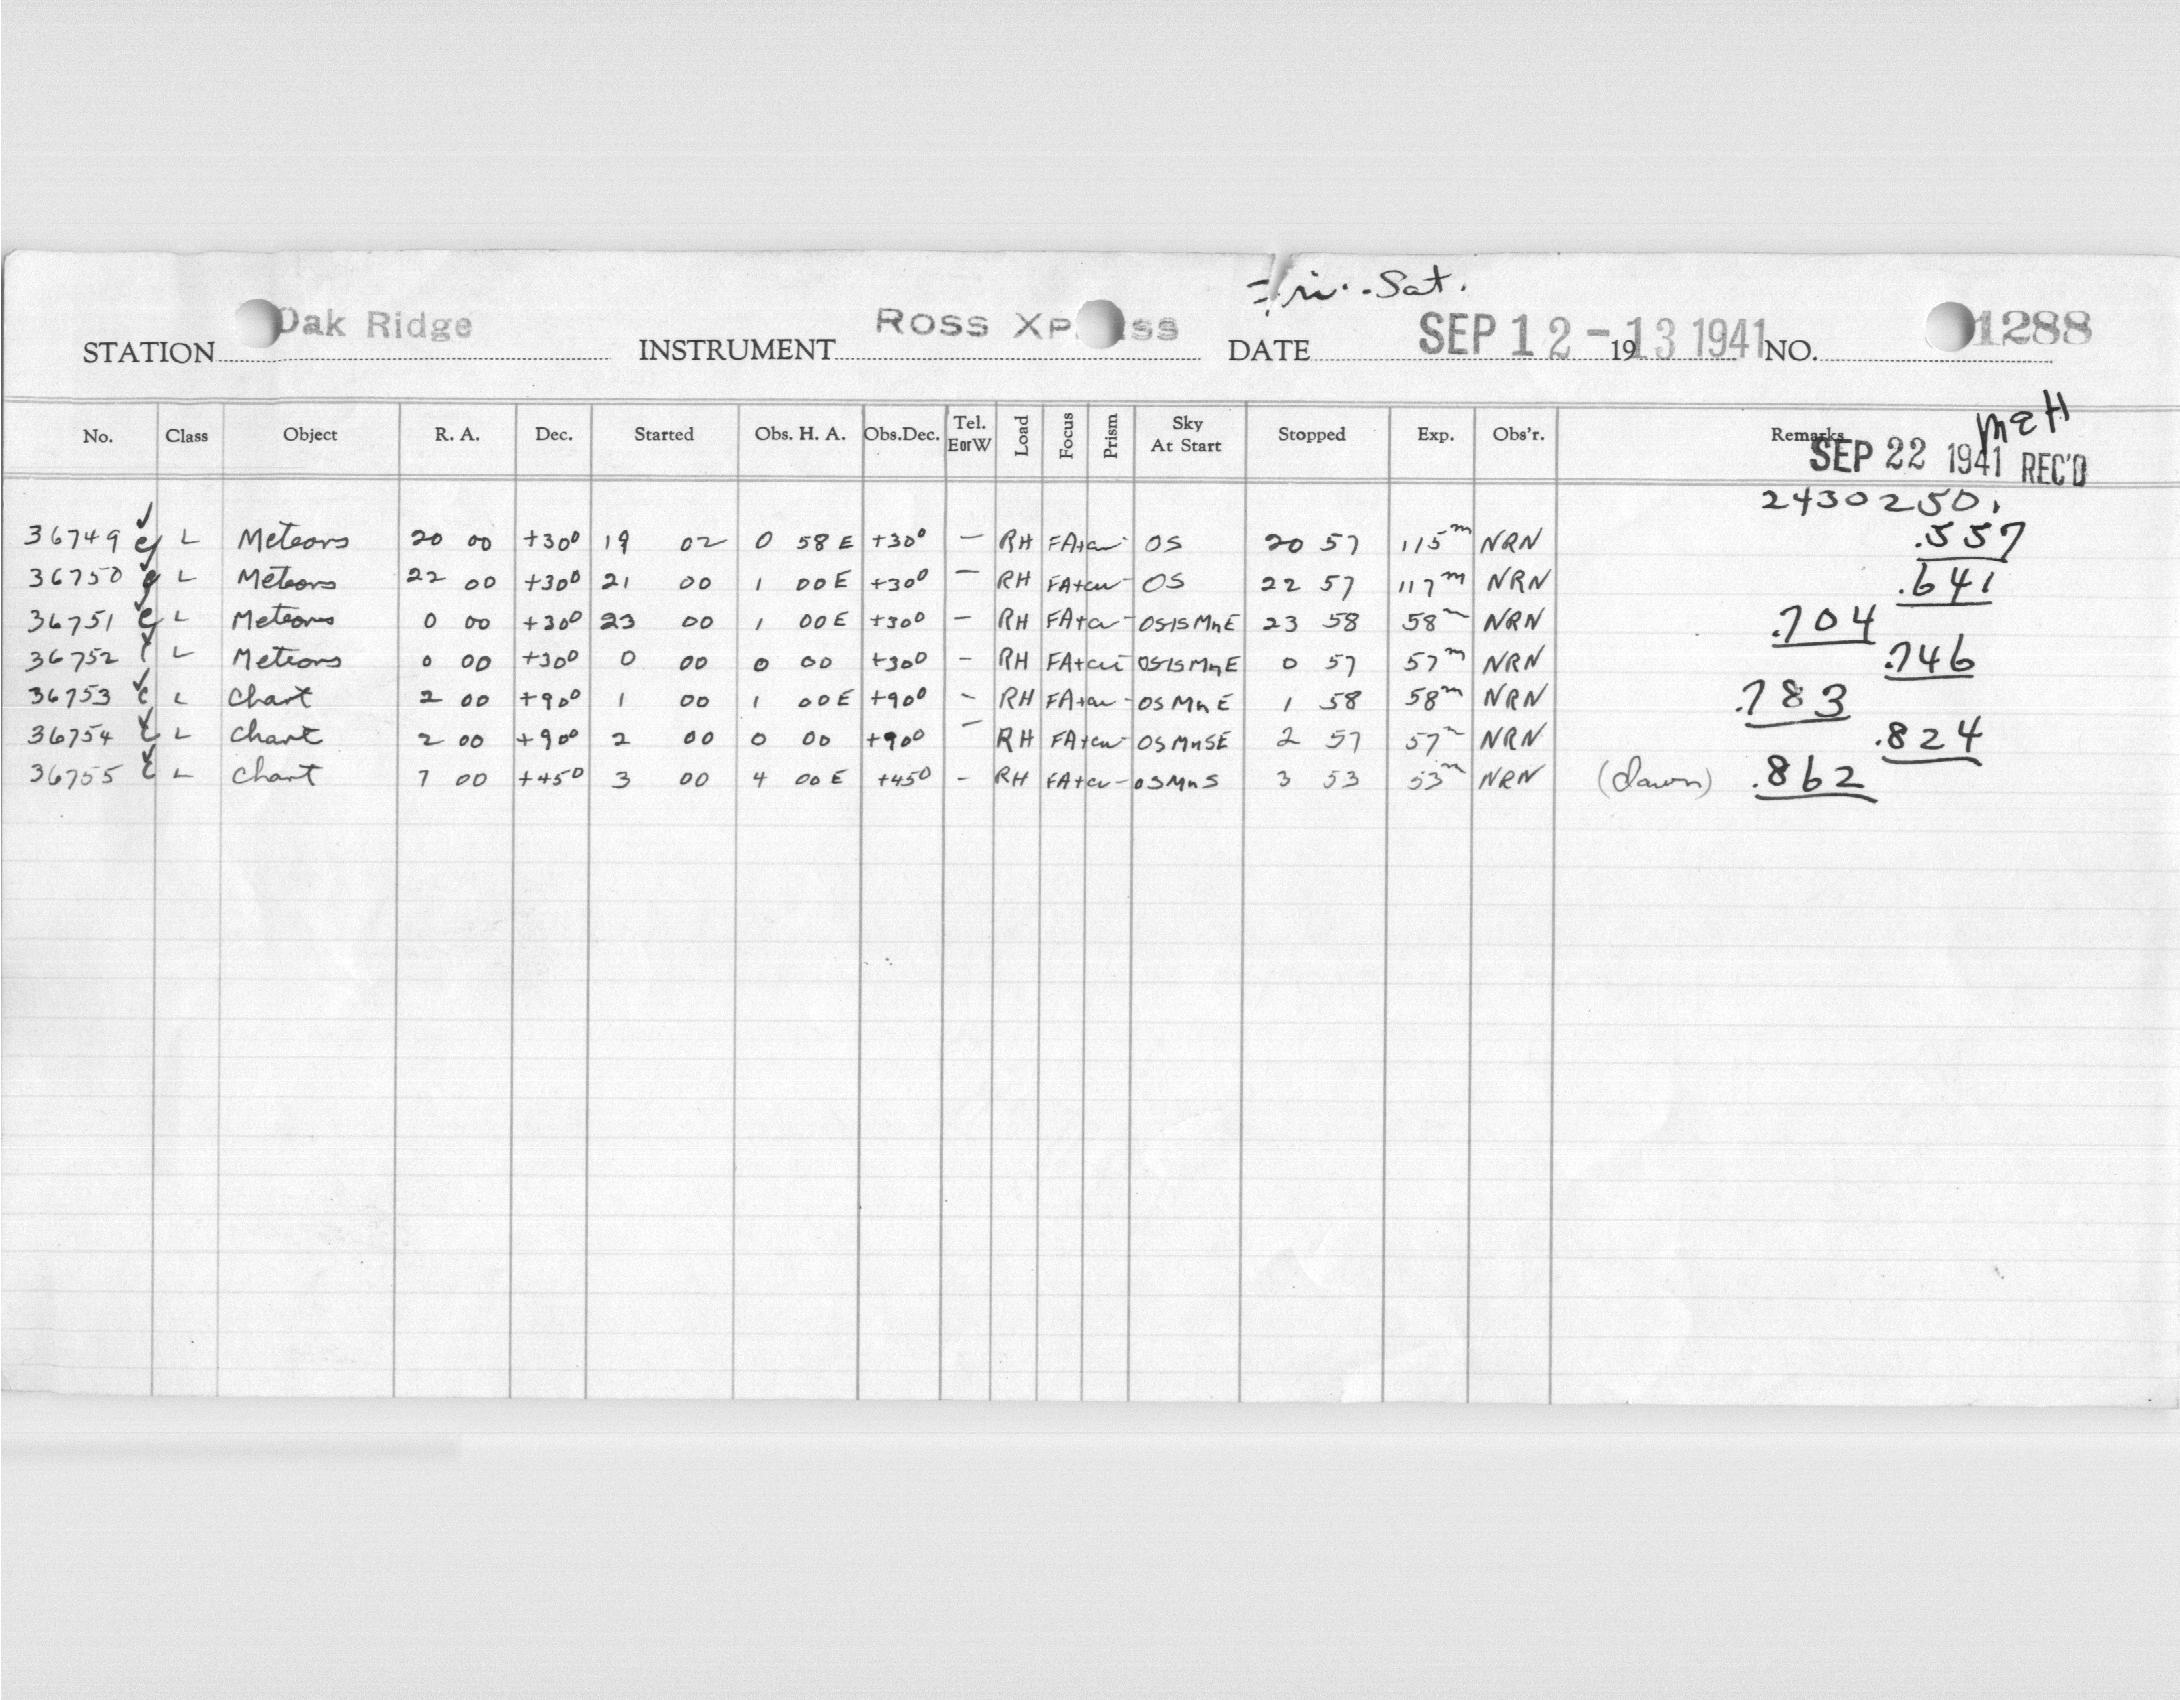 Fri.-Sat.
STATION Oak Ridge INSTRUMENT Ross Xpress DATE SEP 12-13 1941 19 NO. 1288
No. Class Object R. A. Dec. Started Obs. H. A. Obs.Dec. Tel. EorW Load Focus Prism Sky At Start Stopped Exp. Obs'r. Remarks
MEH
SEP 22 1941 REC'D
2430250.
36749 L Meteors 20 00 +30° 19 02 0 58 E +30° - RH FA+cw - OS 20 57 115m NRN .557
36750 L Meteors 22 00 +30° 21 00 1 00 E +30° - RH FA+cw - OS 22 57 117m NRN .641
36751 L Meteors 0 00 +30° 23 00 1 00 E +30° - RH FA+cw - OSISMnE 23 58 58m NRN .704
36752 L Meteors 0 00 +30° 0 00 0 00 +30° - RH FA+cw OSISMnE 0 57 57m NRN .746
36753 L Chart 2 00 +90° 1 00 1 00 E +90° - RH FA+cw - OS MnE 1 58 58m NRN .783
36754 L Chart 2 00 +90° 2 00 0 00 +90° - RH FA+cw - OSMnSE 2 57 57m NRN .824
36755 L Chart 7 00 +45° 3 00 4 00 E +45° - RH FA+cw - OSMnS 3 53 53m NRN (dawn) .862